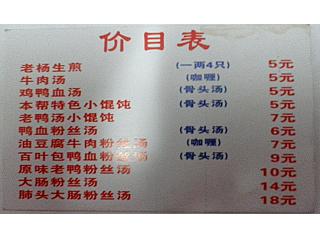 价目表
老杨生煎 (一两4只) 5元
牛肉汤 (咖喱) 5元
鸡鸭血汤 (骨头汤) 5元
本帮特色小馄饨 (骨头汤) 5元
老鸭汤小馄饨 7元
鸭血粉丝汤 (骨头汤) 6元
油豆腐牛肉粉丝汤 (咖喱) 7元
百叶包鸭血粉丝汤 (骨头汤) 9元
原味老鸭粉丝汤 10元
大肠粉丝汤 14元
肺头大肠粉丝汤 18元